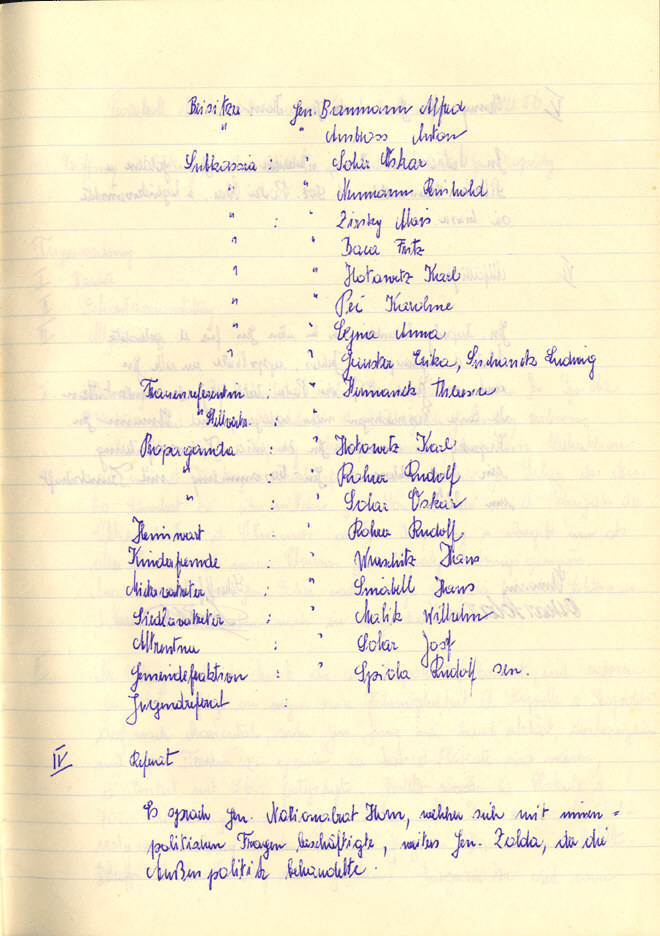 Beisitzer Gen. Baumann Alfred
" " Ambross Anton
Subkassia : " Solar Oskar
" " Neumann Reinhold
" : " Zirsky Alois
" " Baca Fritz
" " Hotowetz Karl
" " Peč Karoline
" " Anna
" " Erika, Suchanek Ludwig
Frauenreferentin : " Hermanek Therese
" Stellvertr. : "
Propaganda : " Hotowetz Karl
" : " Rohrer Rudolf
" : " Solar Oskar
Heimwart : " Rohrer Rudolf
Kinderfreunde : " Hans
Mietervertreter : " Smabell Hans
Siedlervertreter : " Malik Wilhelm
Altrentner : " Solar Josef
Gemeindefraktion : " Spiola Rudolf sen.
Jugendreferat :
IV Referat
Es sprach Gen. Nationalrat Horn, welcher sich mit innen=
politischen Fragen beschäftigte, weiters Gen. Zalda, der die
Außenpolitik behandelte.